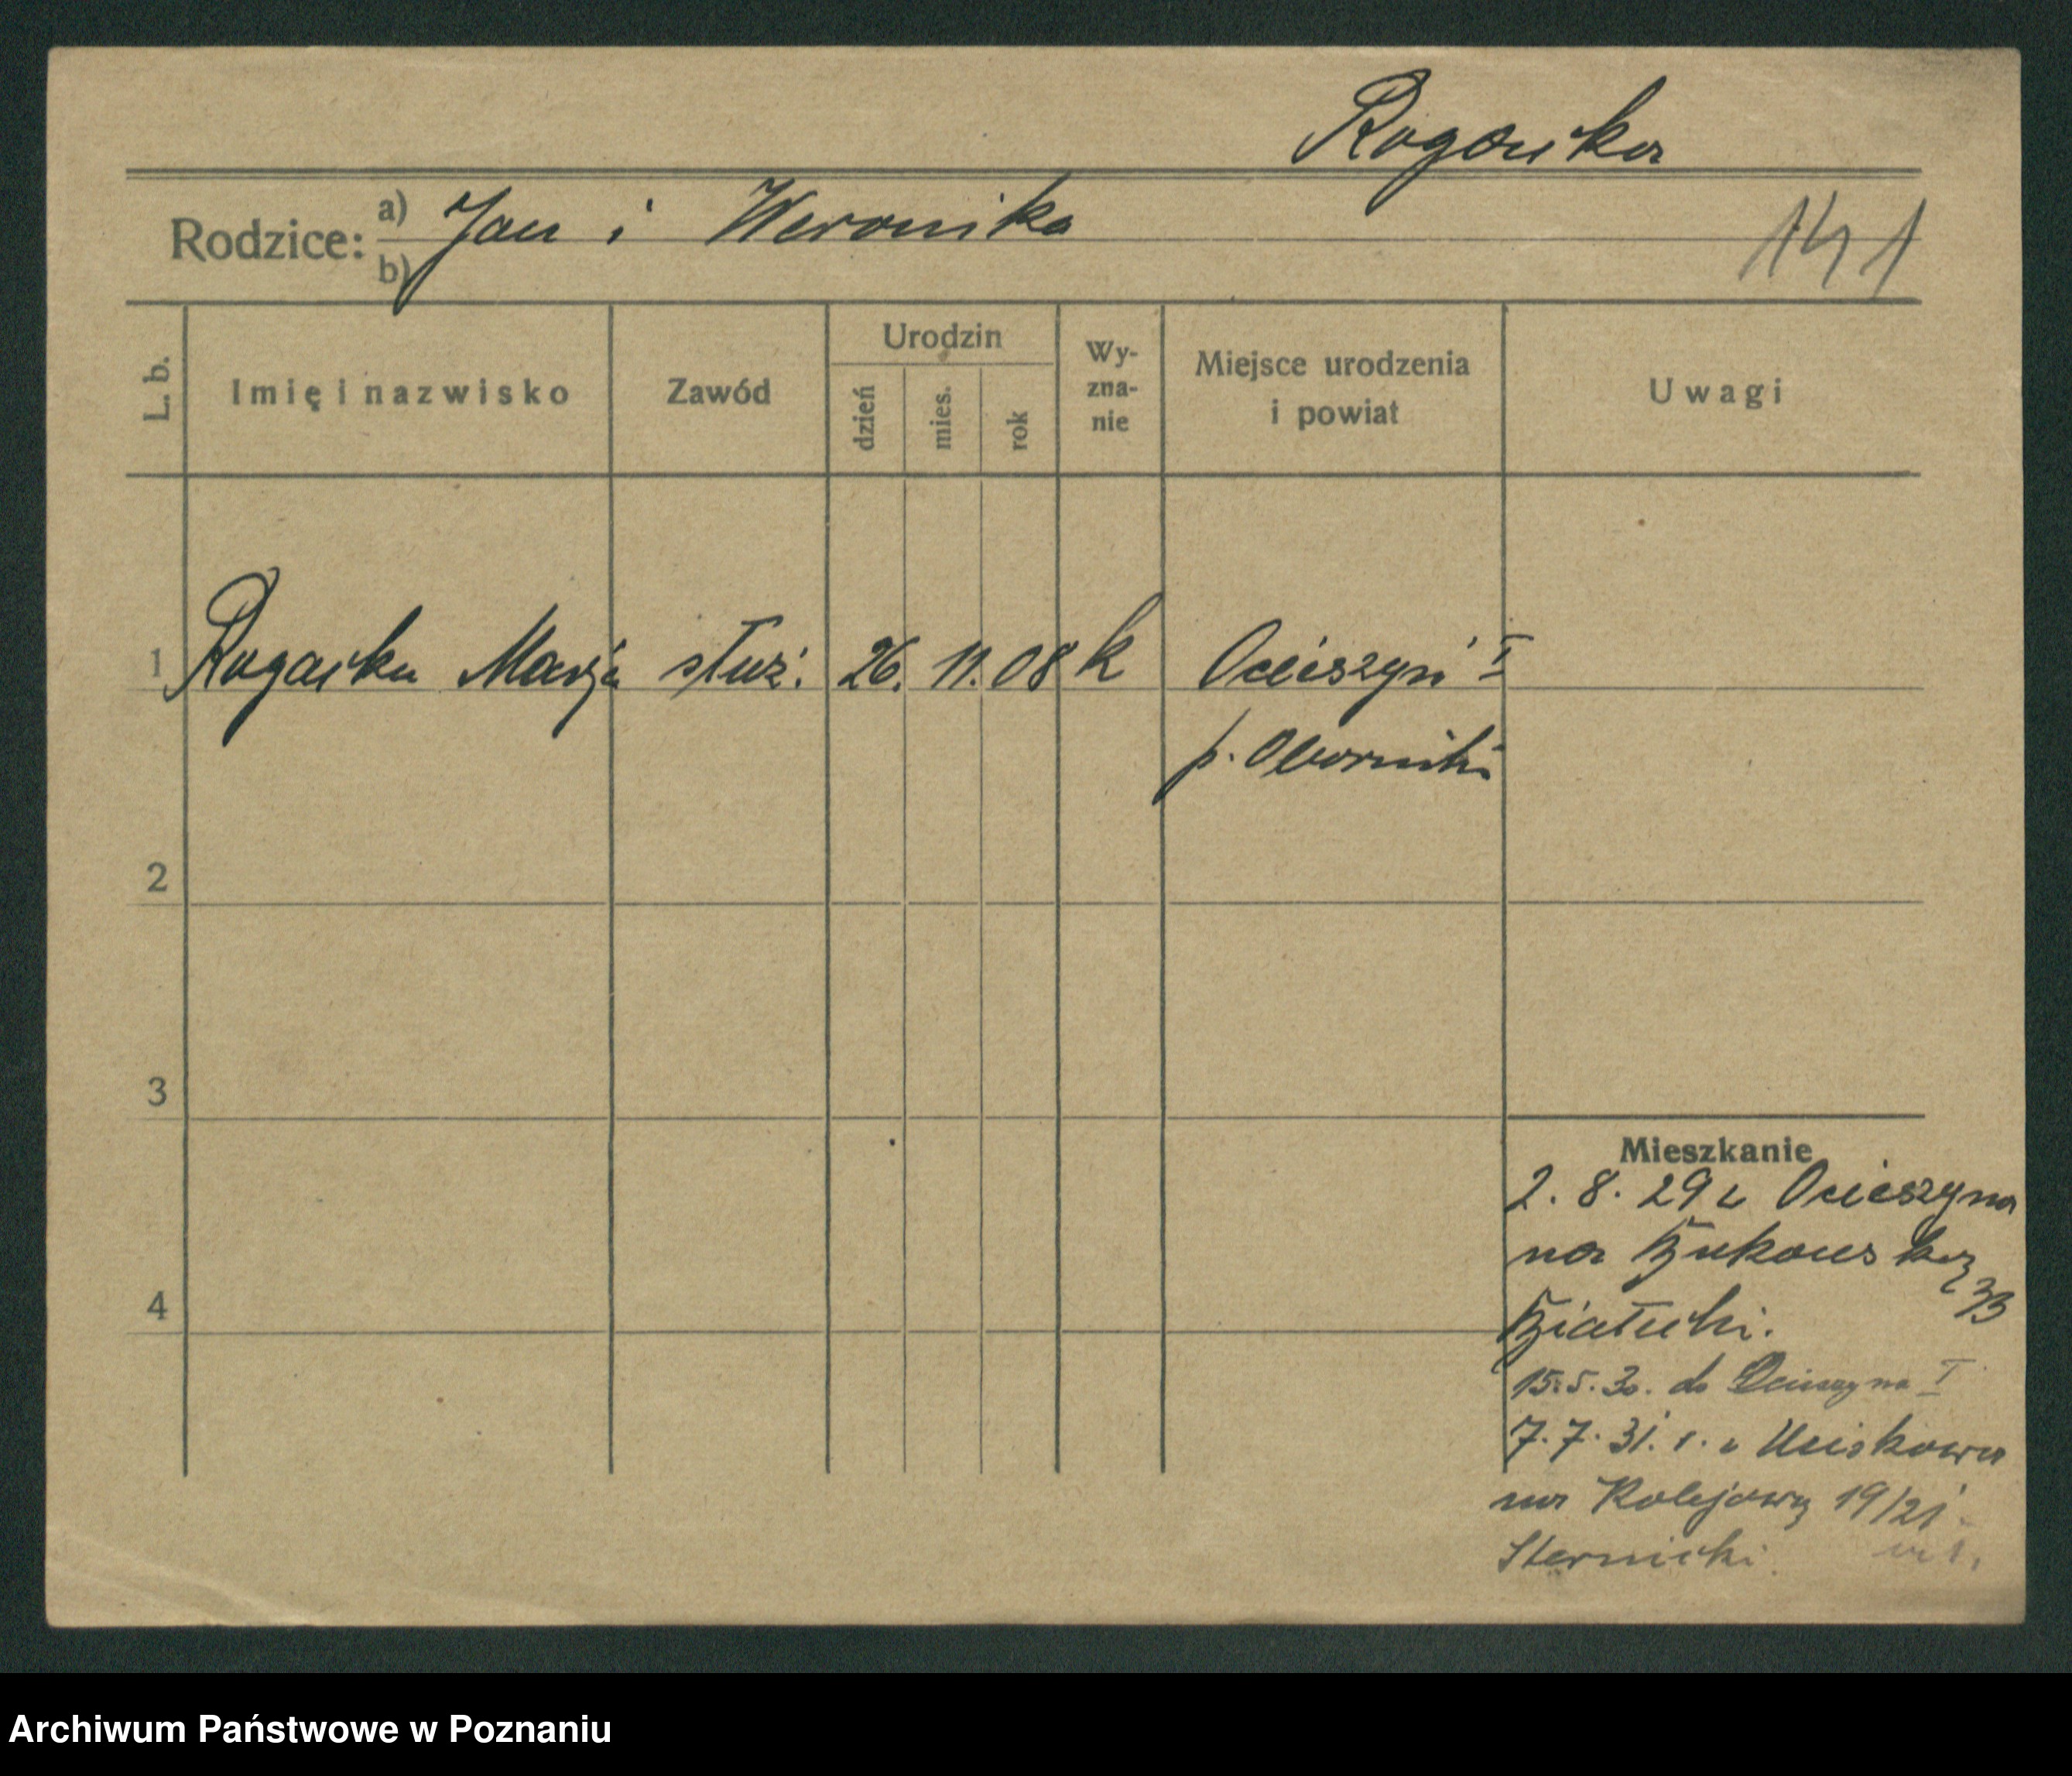 Rogacka
Rodzice: a) Jan i Weronika
b)
141
L. b.
Imię i nazwisko
Zawód
Urodzin
dzień
mies.
rok
Wy-
zna-
nie
Miejsce urodzenia
i powiat
Uwagi
1 Rogacka Marja służ. 26. 11. 08 k Ocieszyn I
p. Oborniki
2
3
4
Mieszkanie
2. 8. 29 z Ocieszyna
na Bukowską
33
15.5.30. do Ocieszyna I
7. 7. 31. r. z Uścikowa
na Kolejową 19/21
Sternicki
Archiwum Państwowe w Poznaniu